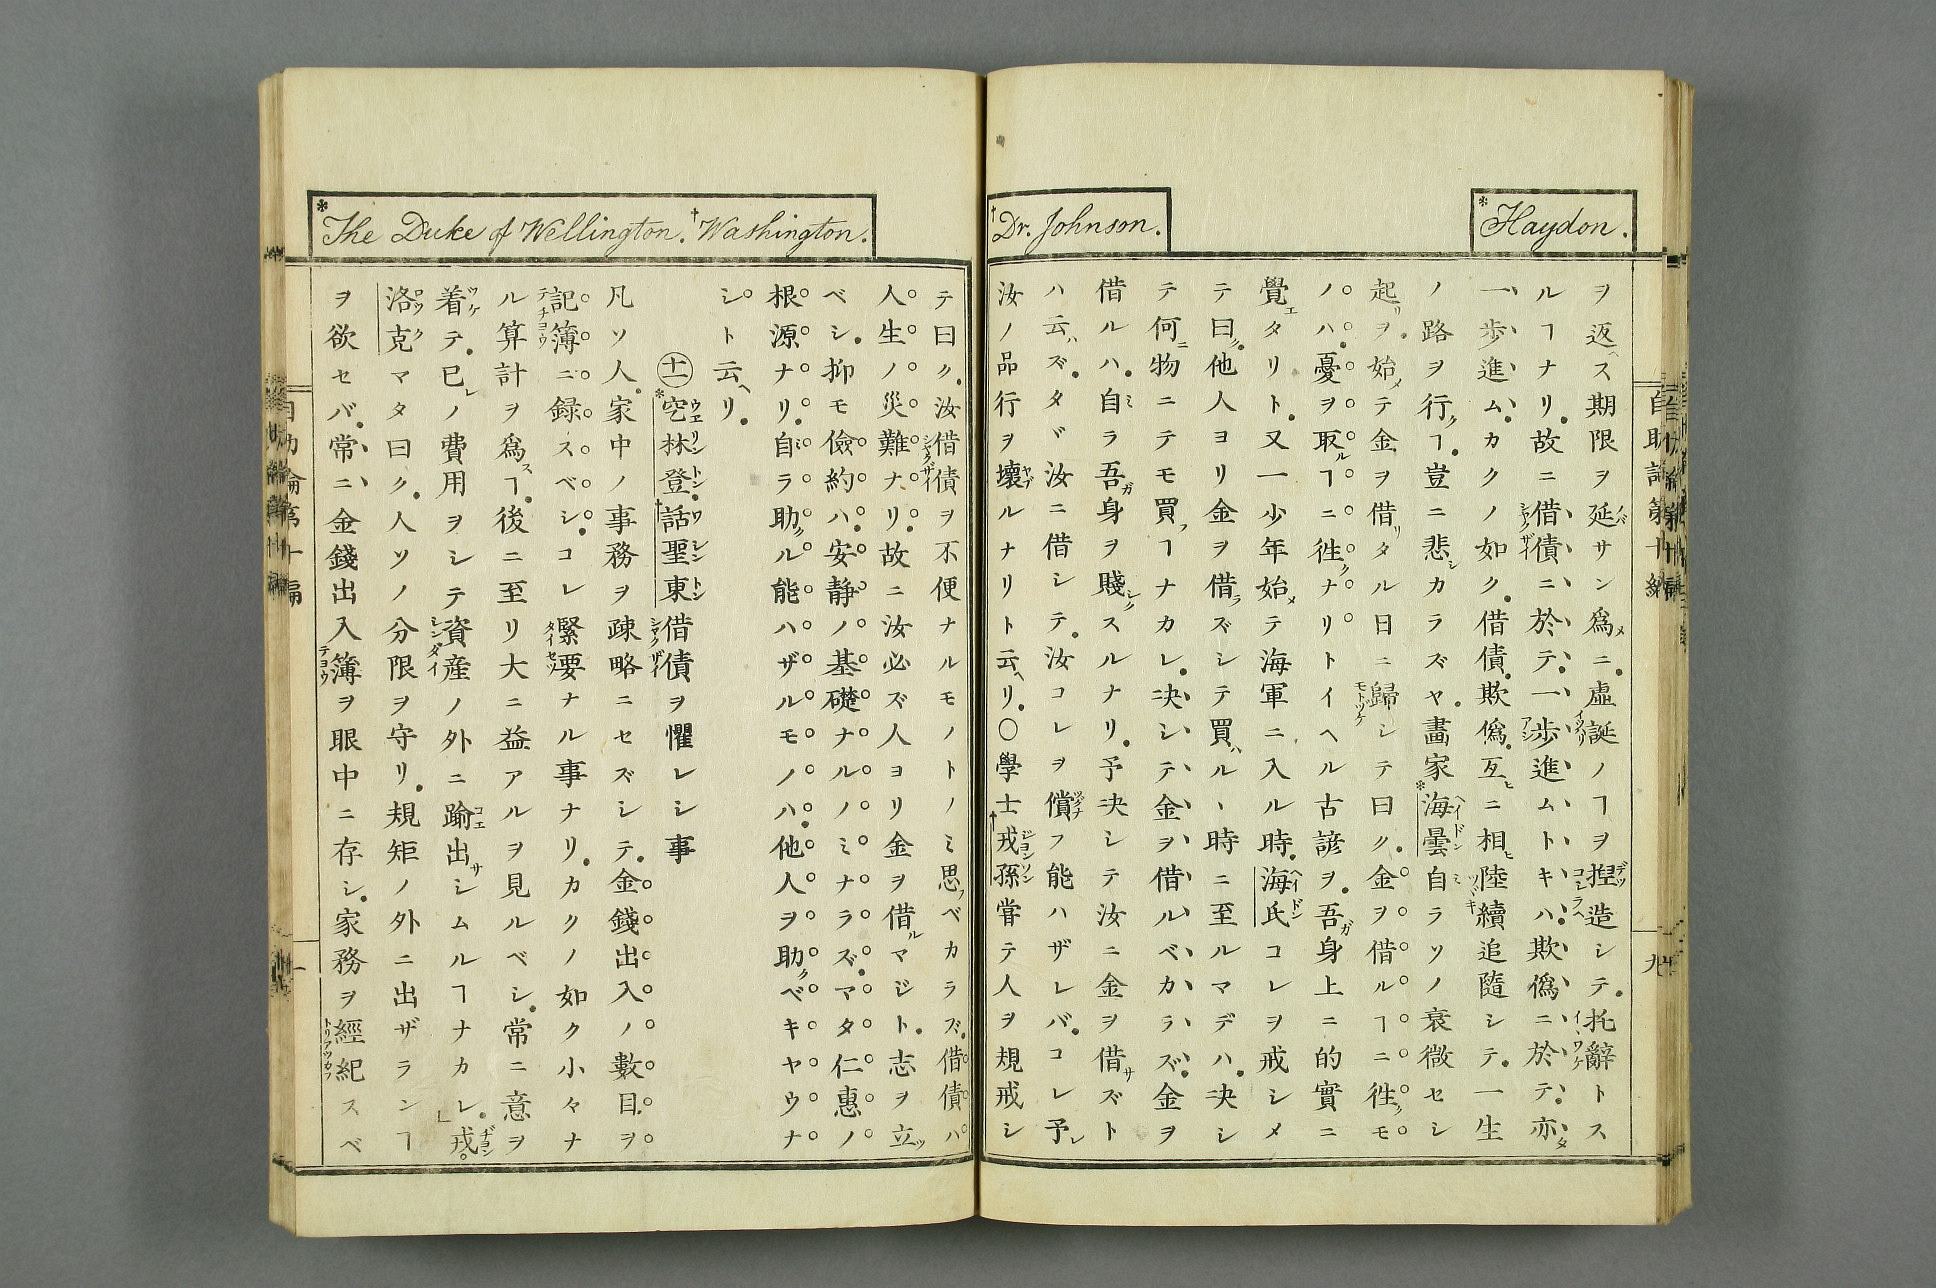 *Haydon.
†Dr. Johnson.
ヲ返ス期限ヲ延サン爲ニ虛誕ノヿヲ揑造シテ托辭トス
ルヿナリ故ニ借債ニ於テ一歩進ムトキハ欺僞ニ於テ亦
一歩進ムカクノ如ク借債欺僞互ニ相陸續追隨シテ一生
ノ路ヲ行クヿ豈ニ悲シカラズヤ畫家*海曇自ラソノ衰微セシ
起リヲ始メテ金ヲ借リタル日ニ歸シテ曰ク金ヲ借ルヿニ徃クモ
ノハ憂ヲ取ルヿニ徃クナリトイヘル古諺ヲ吾ガ身上ニ的實ニ
覺エタリト又一少年始メテ海軍ニ入ル時海氏コレヲ戒シメ
テ曰ク他人ヨリ金ヲ借ラズシテ買ハルヽ時ニ至ルマデハ决シ
テ何物ニテモ買フヿナカレ决シテ金ヲ借ルベカラズ金ヲ
借ルハ自ラ吾ガ身ヲ賤シクスルナリ予决シテ汝ニ金ヲ借サズト
ハ云ハズタヾ汝ニ借シテ汝コレヲ償フ能ハザレバコレ予レ
汝ノ品行ヲ壞ルナリト云ヘリ〇學士†戎孫甞テ人ヲ規戒シ
*The Duke of Wellington. †Washington.
テ曰ク汝借債ヲ不便ナルモノトノミ思フベカラズ借債ハ
人生ノ災難ナリ故ニ汝必ズ人ヨリ金ヲ借ルマジト志ヲ立ツ
ベシ抑モ儉約ハ安靜ノ基礎ナルノミナラズマタ仁惠ノ
根源ナリ自ラ助クル能ハザルモノハ他人ヲ助クベキヤウナ
シト云ヘリ
十一 *空林登†話聖東借債ヲ懼レシ事
凡ソ人家中ノ事務ヲ疎略ニセズシテ金錢出入ノ數目ヲ
記簿ニ録スベシコレ緊要ナル事ナリカクノ如ク小々ナ
ル算計ヲ爲スヿ後ニ至リ大ニ益アルヲ見ルベシ常ニ意ヲ
着テ已レノ費用ヲシテ資産ノ外ニ踰出サシムルヿナカレ」戎
洛克マタ曰ク人ソノ分限ヲ守リ規矩ノ外ニ出ザランヿ
ヲ欲セバ常ニ金錢出入簿ヲ眼中ニ存シ家務ヲ經紀スベ